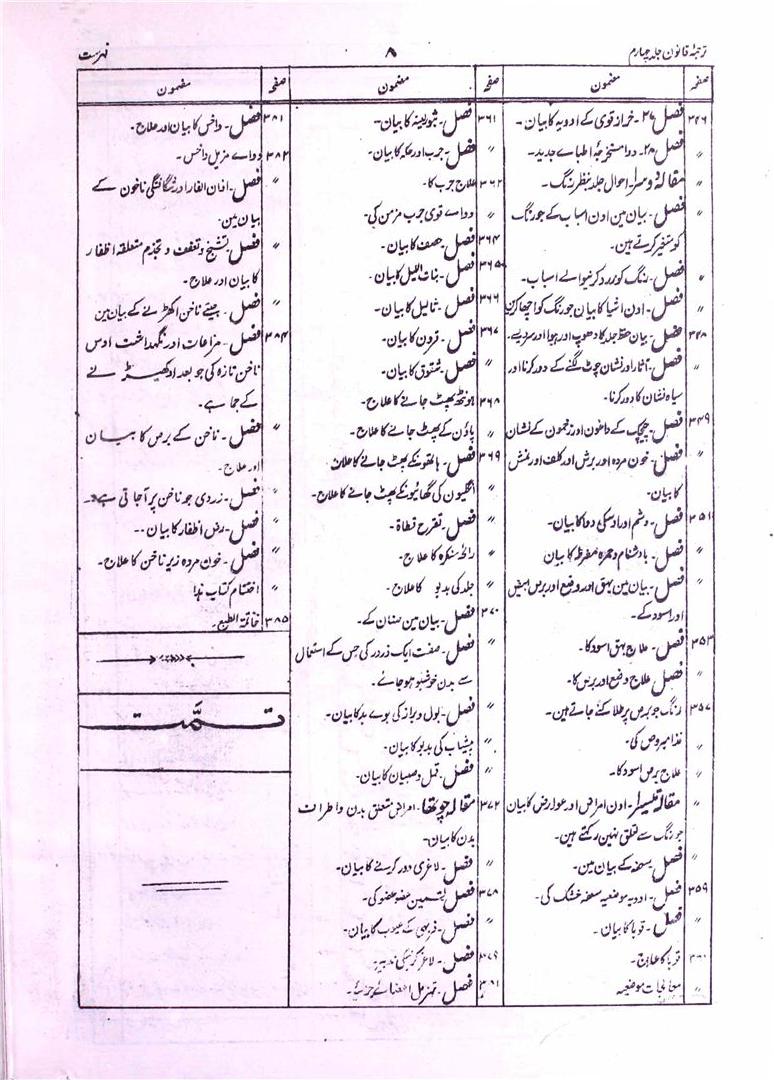 ترجمۂ قانون جلد چہارم
۸
فہرست
صفحہ مضمون
۳۴۶ فصل ۲۷۔ خراز قوی کے ادویہ کا بیان۔
〃 فصل ۲۸۔ دوا مستخرجۂ اطبائے جدید۔
〃 مقالہ دوسرا۔ احوال جلد بنظر رنگ۔
〃 فصل۔ بیان مین اون اسباب کے جو رنگ
کو متغیر کرتے ہین۔
〃 فصل۔ رنگ کو زرد کرنیوالے اسباب۔
〃 فصل۔ اون اشیا کا بیان جو رنگ کو اچھا کرین
۳۴۸ فصل۔ بیان حفظ جلد کا دھوپ اور ہوا اور سردیسے۔
〃 فصل۔ آثار اور نشان چوٹ لگنے کے دور کرنا اور
سیاہ نشان کا دور کرنا۔
۳۴۹ فصل۔ چیچک کے داغون اور زخمون کے نشان
〃 فصل۔ خون مردہ اور برش اور کلف اور نمش
کا بیان۔
۳۵۱ فصل۔ وشم اور اوسکی دوا کا بیان۔
〃 فصل۔ بادشنام و حمرہ مفرطہ کا بیان
〃 فصل۔ بیان مین بہق اور وضح اور برص ابیض
اور اسود کے۔
۳۵۳ فصل۔ علاج بہق اسود کا۔
〃 فصل علاج وضح اور برص کا۔
۳۵۷ رنگ جو برص پر طلا کئے جاتے ہین۔
〃 غذا مبروص کی۔
〃 علاج برص اسود کا۔
〃 مقالہ تیسرا۔ اون امراض اور عوارض کا بیان
جو رنگ سے تعلق نہین رکھتے ہین۔
〃 فصل۔ سعفہ کے بیان مین۔
۳۵۹ فصل۔ ادویہ موضعیہ سعفہ خشک کی۔
〃 فصل۔ قوبا کا بیان۔
قوبا کا علاج۔
〃 معالجات موضعیہ
صفحہ مضمون
۳۶۱ فصل۔ بثور لبنیہ کا بیان۔
〃 فصل۔ جرب اور حکہ کا بیان۔
۳۶۲ علاج جرب کا۔
〃 دوائے قوی جرب مزمن کی۔
۳۶۴ فصل۔ حصف کا بیان۔
۳۶۵ فصل۔ بنات اللیل کا بیان۔
۳۶۶ فصل۔ ثالیل کا بیان۔
۳۶۷ فصل۔ قرون کا بیان۔
〃 فصل۔ شقوق کا بیان۔
۳۶۸ ہونٹھ پھٹ جانے کا علاج۔
〃 پاؤن کے پھٹ جانے کا علاج۔
۳۶۹ فصل۔ ہاتھونکے پھٹ جانے کا علاج
〃 انگلیون کی گھائیونکے پھٹ جانے کا علاج۔
〃 فصل۔ تقرح قطاۃ۔
〃 رائحہ منکرہ کا علاج۔
〃 جلد کی بدبو کا علاج۔
۳۷۰ فصل۔ بیان مین صنان کے۔
〃 فصل۔ صفت ایک زرور کی جس کے استعمال
سے بدن خوشبو ہوجائے۔
〃 فصل۔ بول و براز کی بوے بد کا بیان۔
〃 پیشاب کی بدبو کا بیان۔
〃 فصل۔ قمل و صیبان کا بیان۔
۳۷۲ مقالہ چوتھا۔ امراض متعلق بدن و اطراف
بدن کا بیان۔
〃 فصل۔ لاغری دور کرنے کا بیان۔
۳۷۸ فصل تسمین عضو عضو کی۔
〃 فصل۔ فربہی کے عیوب کا بیان۔
۳۷۹ فصل۔ لاغر کرنیکی تدبیر۔
۳۸۱ فصل۔ تہزیل اعضائے جزئیہ۔
صفحہ مضمون
۳۸۱ فصل۔ داخس کا بیان اور علاج۔
۳۸۲ دوائے مزیل داخس۔
〃 فصل۔ اذان الفار اور شگافتگی ناخون کے
بیان مین۔
〃 فصل۔ تشنج و تعقف و تجذم متعلقہ اظفار
کا بیان اور علاج۔
〃 فصل۔ جیتے ناخن اکھڑنے کے بیان مین
۳۸۴ فصل۔ مراعات اور نگہداشت اوس
ناخن تازہ کی جو بعد اوکھیڑنے
کے جما ہے۔
〃 فصل۔ ناخن کے برص کا بیان
اور علاج۔
〃 فصل۔ زردی جو ناخن پر آجاتی ہے۔
〃 فصل۔ رض اظفار کا بیان۔۔
〃 فصل۔ خون مردہ زیر ناخن کا علاج۔
〃 اختتام کتاب ہذا
۳۸۵ خاتمۃ الطبع۔
تمت